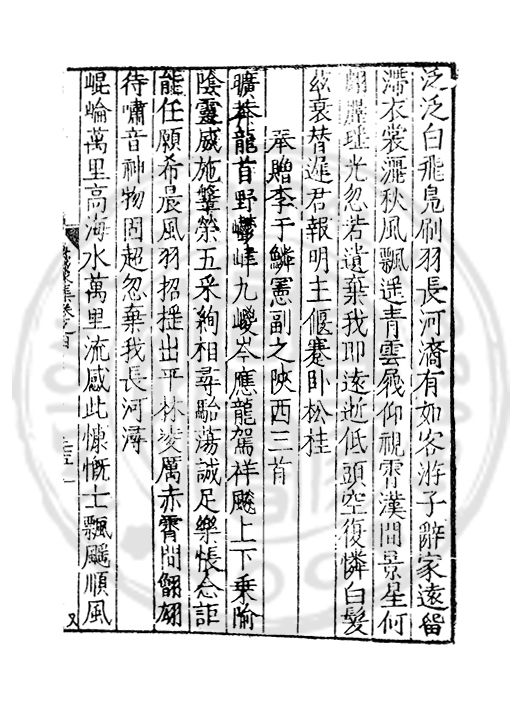 泛泛白飛鳧刷羽長河濱有如客游子辭家遠留
滯衣裳灑秋風飄遥青雲幾仰視霄漢間景星何
煜光忽若遺棄我即遠逝低頭空復憐白髮
兹衰替遲君報明主偃蹇卧松桂
奉贈李于鱗憲副之陝西三首
曠莽龍首野鬱嵂九嵕岑應龍駕祥飈上下乘陰
陰靈威施鞶榮五采絢相尋駘蕩誠足樂悵念詎
能任願希晨風羽招提出平林凌厲赤霄間翩翩
待嘯音神物固超忽棄我長河潯
崐崘萬里高海水萬里流感此慷慨士飄飄順風